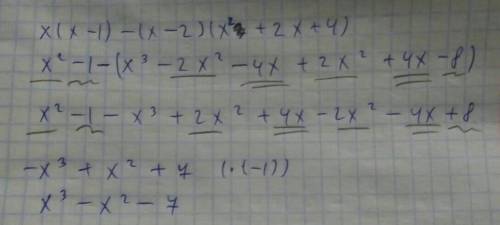 x(x-1)-(x-2)(x²+2x+4)
x²-1-(x³-2x²-4x+2x²+4x-8)
x²-1-x³+2x²+4x-2x²-4x+8
-x³+x²+7 (·(-1))
x³-x²-7